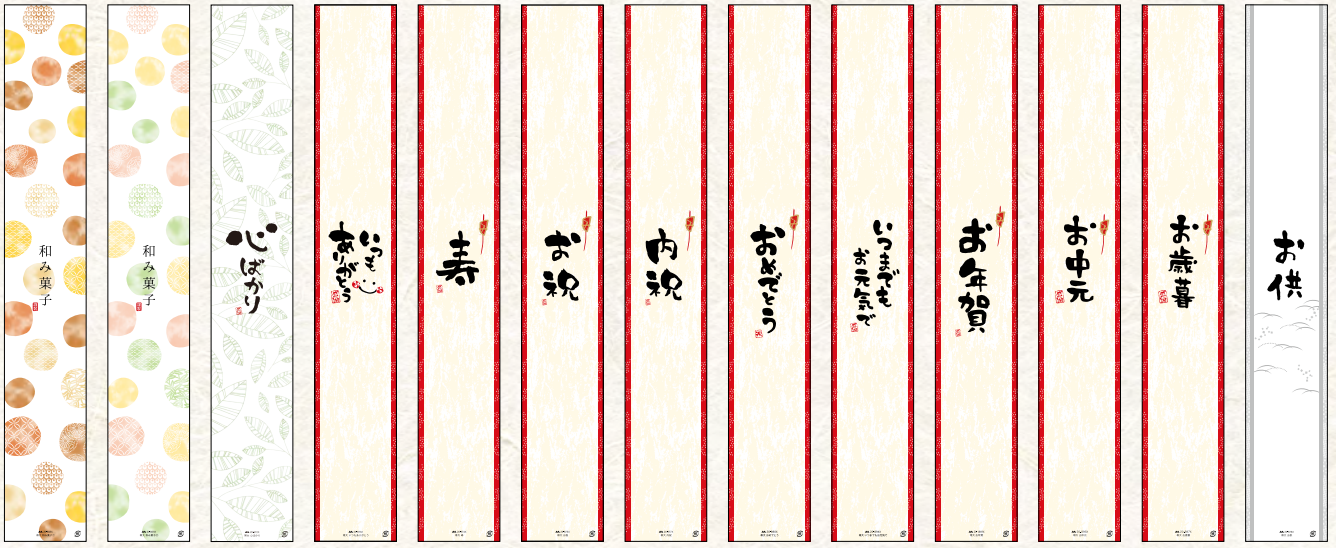 和み菓子
和み菓子
心ばかり
いつも
ありがとう
寿
お祝
内祝
おめでとう
いつまでも
お元気で
お年賀
お中元
お歳暮
お供